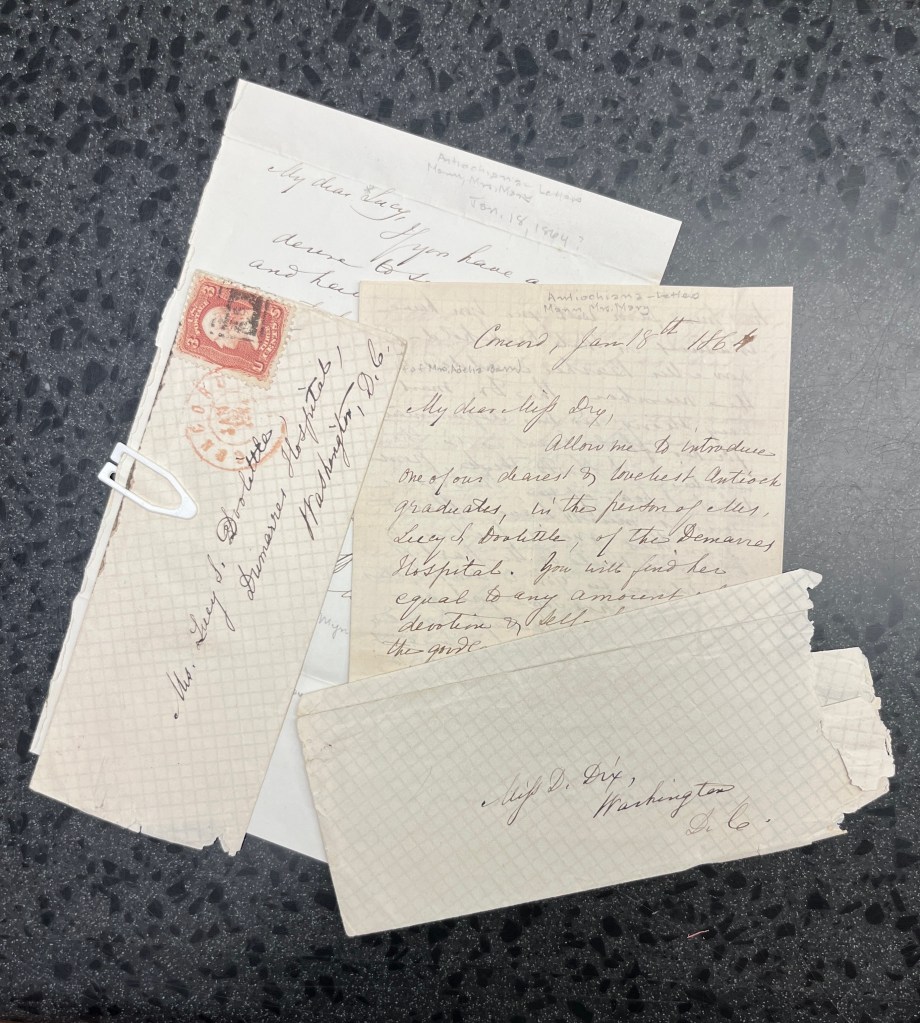 Antiochiana - Letters
Mann, Mrs. Mary
Jan. 18, 1864?
My dear Lucy,
If you have a
desire to s
and hea
3 3
POSTAGE
THREE CENTS
CONCORD
JAN
Mrs. Lucy S. Doolittle,
Demarres Hospital,
Washington, D.C.
Antiochiana - Letters
Mann, Mrs. Mary
Concord, Jan 18th 1864
My dear Miss Dix,
Allow me to introduce
one of our dearest & loveliest Antioch
graduates, in the person of Mrs.
Lucy S. Doolittle, of the Demarres
Hospital. You will find her
equal to any amount
devotion & self-
the good
Miss D. Dix,
Washington
D. C.